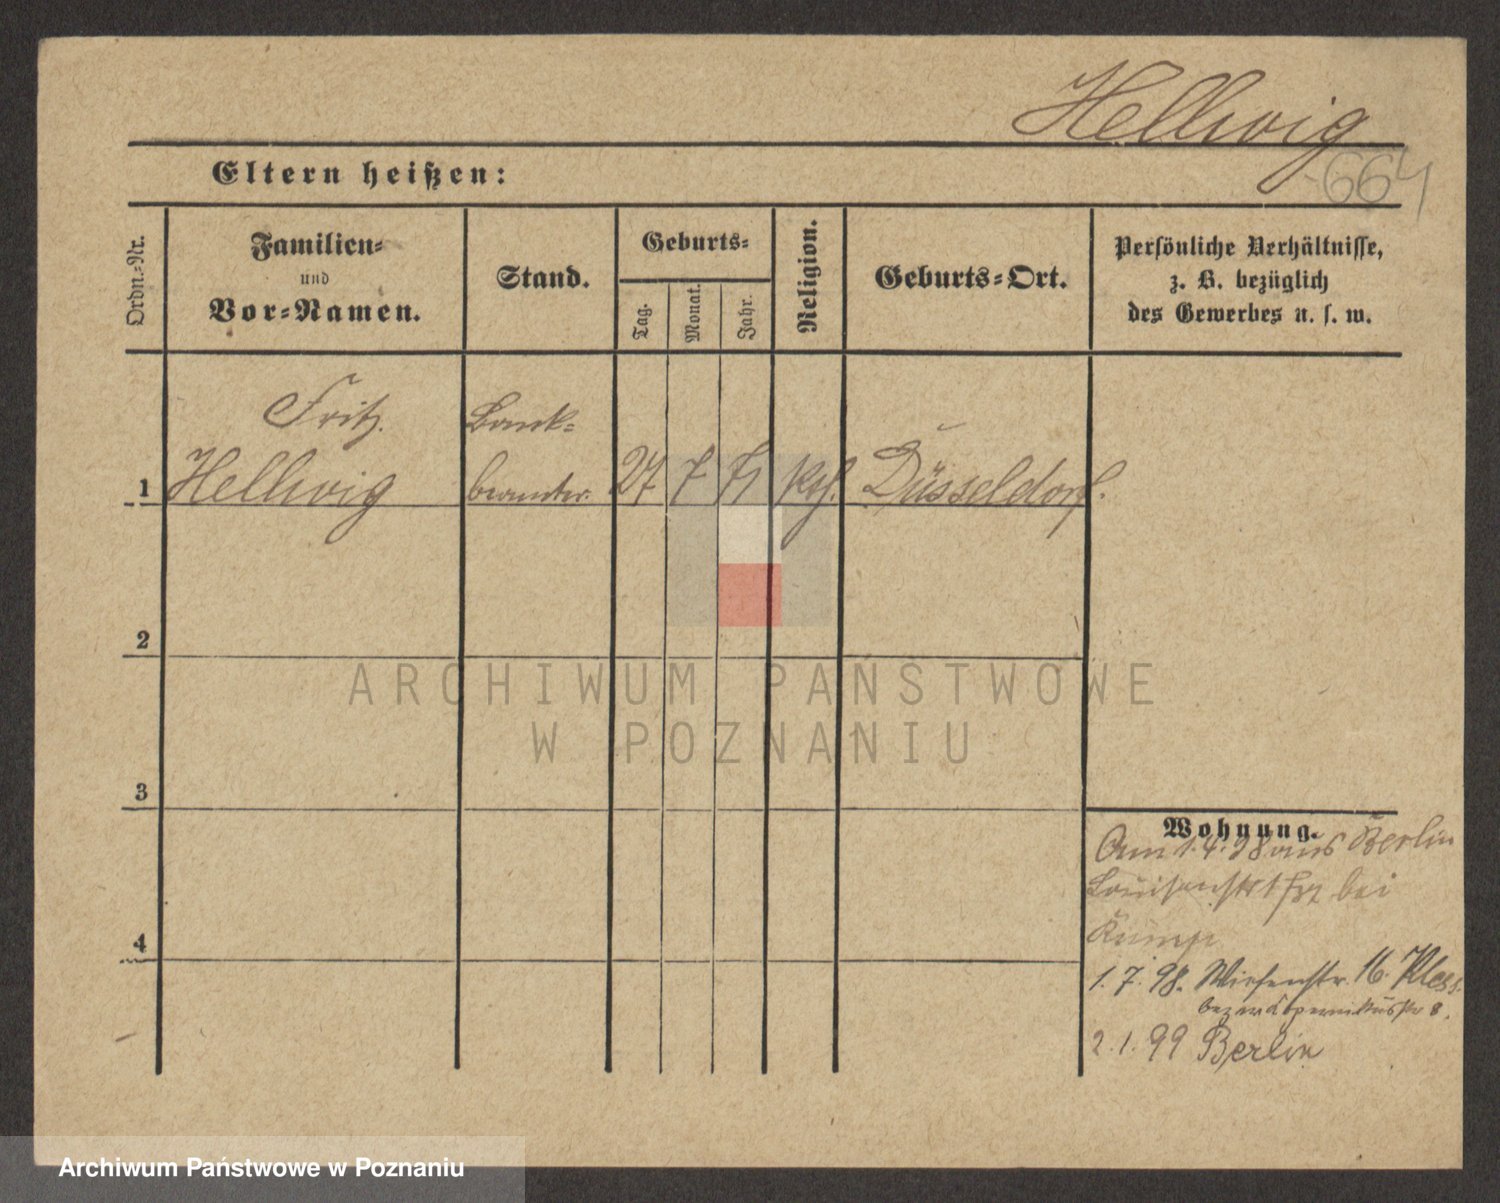 Hellwig
664
Eltern heißen:
Ordn.-Nr.
Familien-
und
Vor-Namen.
Stand.
Geburts-
Tag.
Monat.
Jahr.
Religion.
Geburts-Ort.
Persönliche Verhältnisse,
z. B. bezüglich
des Gewerbes u. s. w.
Fritz.
Bank-
1 Hellwig beamter. 27 7 71 Düsseldorf.
2
3
4
ARCHIWUM PAŃSTWOWE
W POZNANIU
Wohnung.
Am 1.4.98 aus Berlin
Louisenstr bei
1.7.98. Wiesenstr. 16.
Kopernikusstr 8.
2.1.99 Berlin
Archiwum Państwowe w Poznaniu